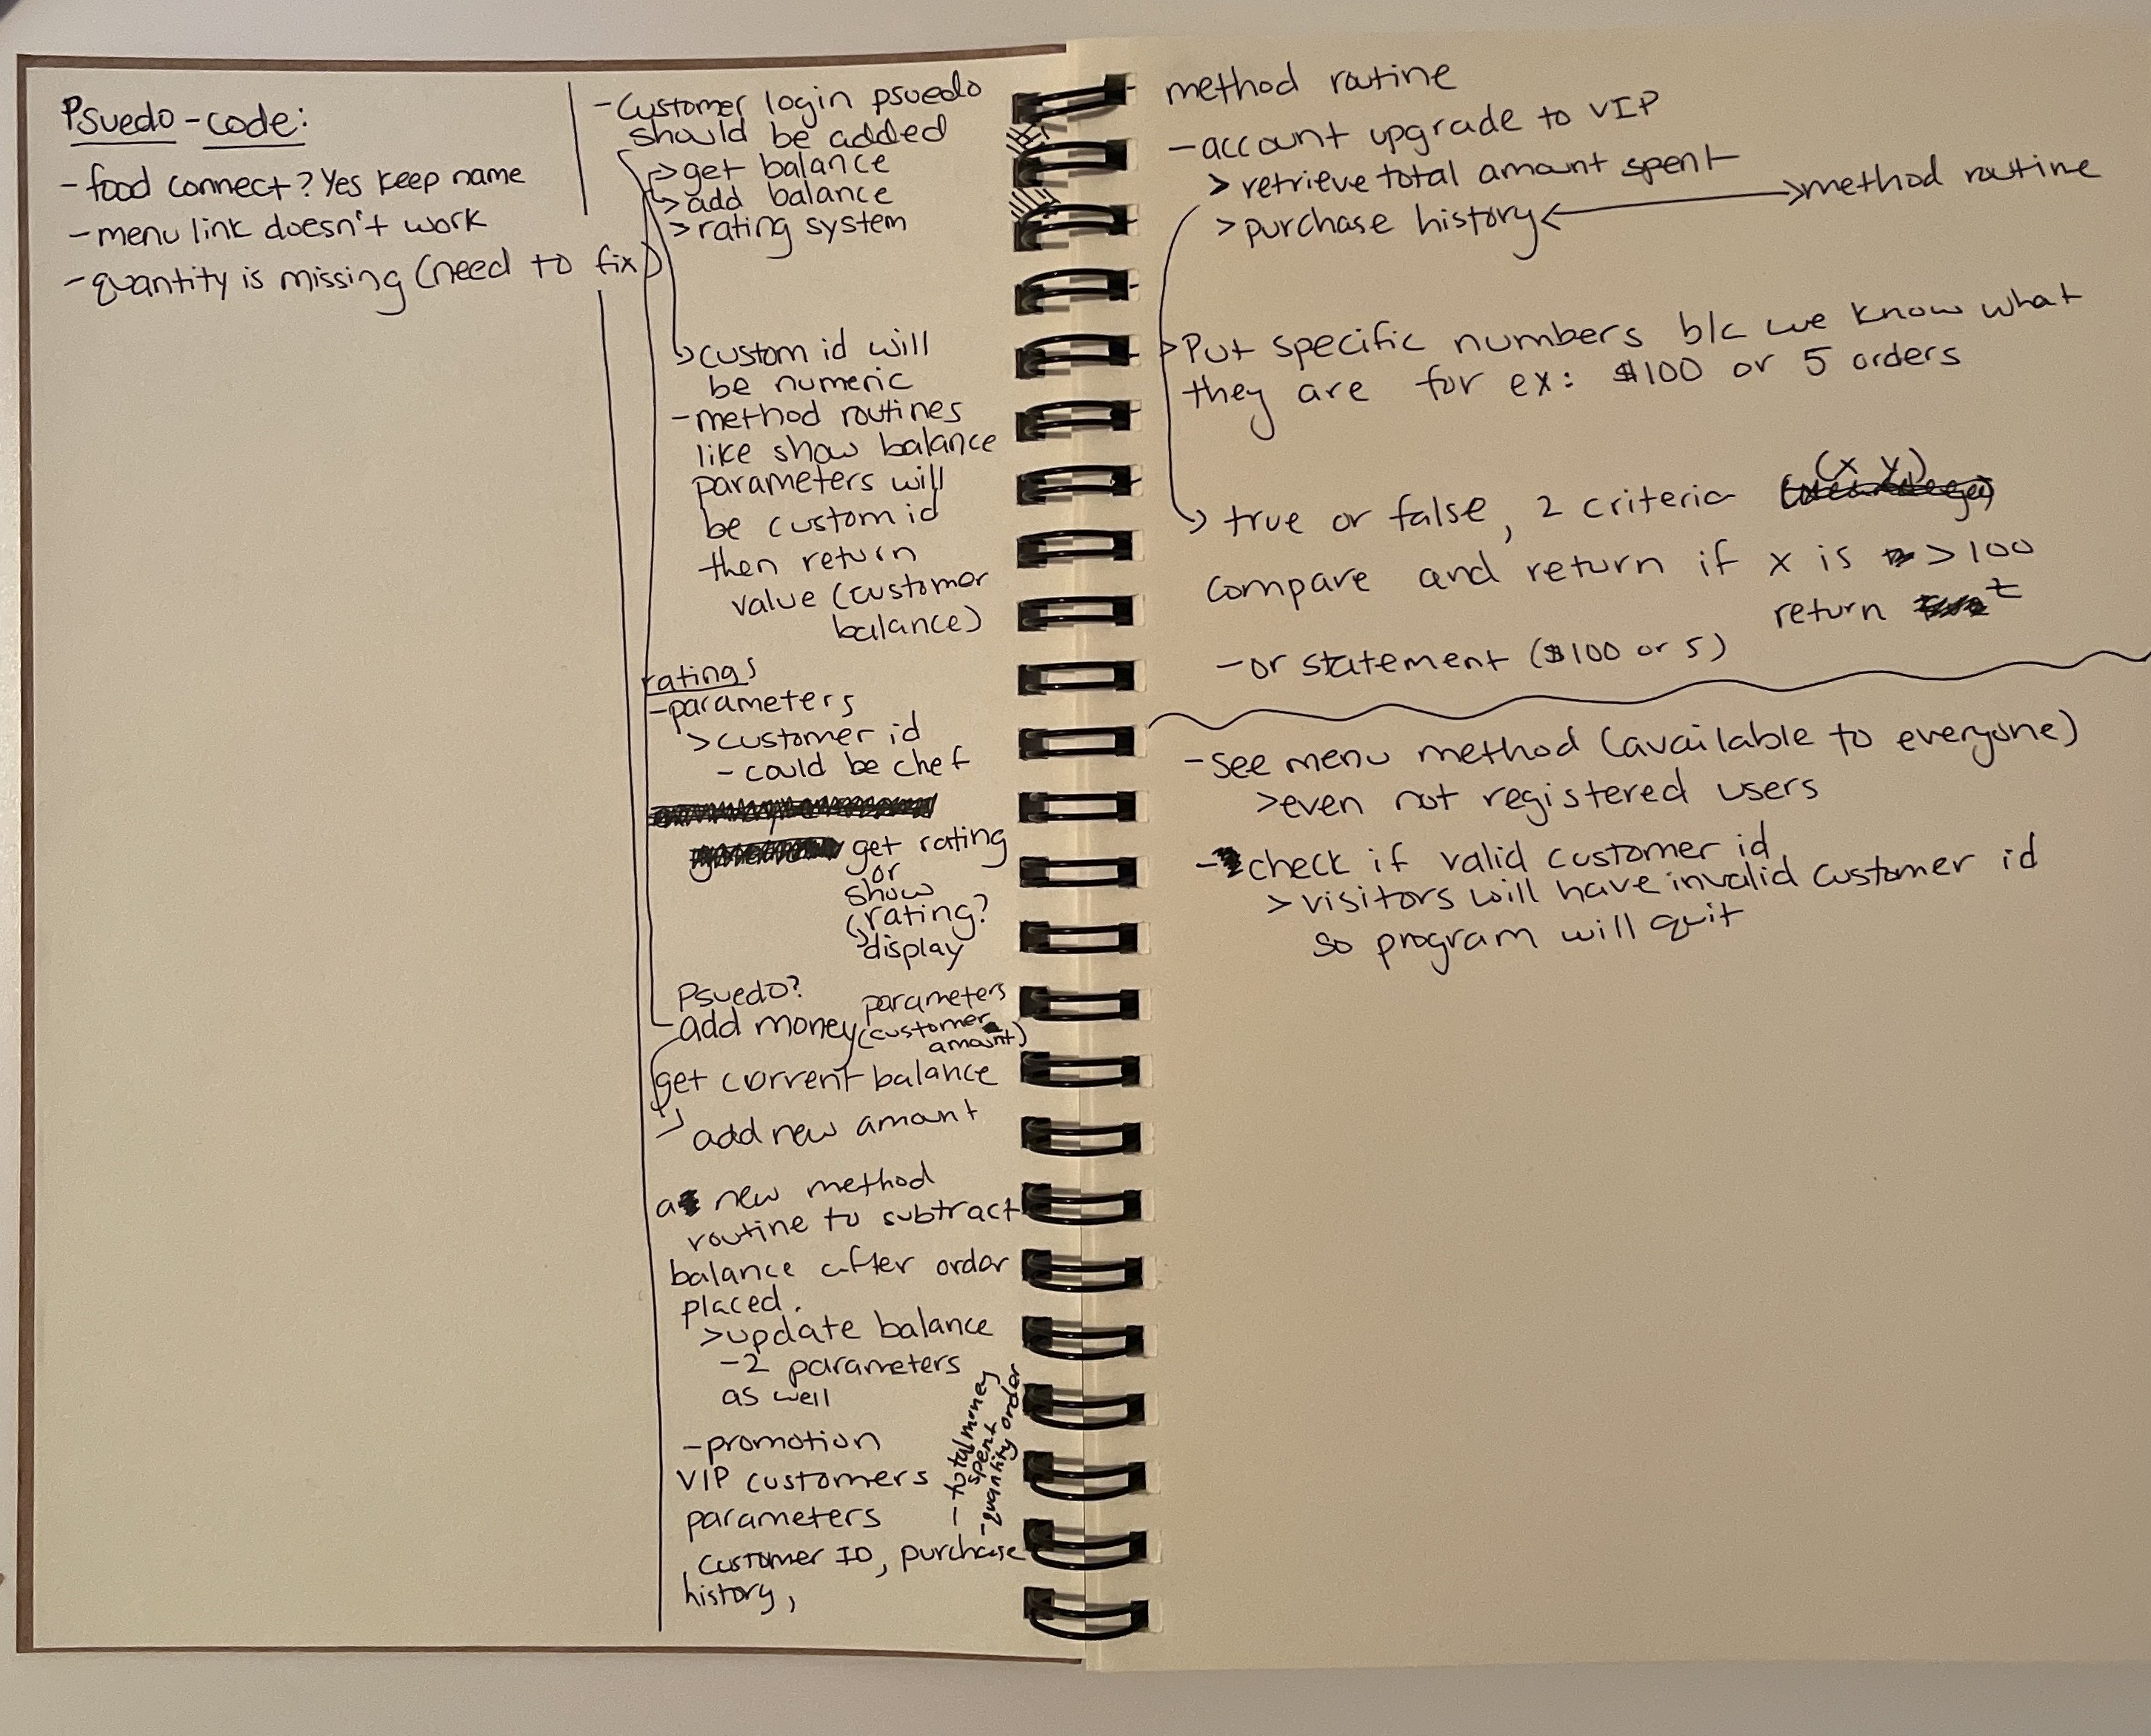 Psuedo-code:
- food connect? Yes keep name
- menu link doesn't work
- quantity is missing (need to fix)
- Customer login psuedo
should be added
> get balance
> add balance
> rating system
custom id will
be numeric
- method routines
like show balance
parameters will
be custom id
then return
value (customer
balance)
ratings
- parameters
> customer id
- could be chef
get rating
or
show
rating?
display
Psuedo?
parameters
add money (customer
amount)
get current balance
add new amount
a new method
routine to subtract
balance after order
placed.
> update balance
- 2 parameters
as well
- promotion
VIP customers
parameters
- total money
spent
- quantity order
, customer ID, purchase
history,
method routine
- account upgrade to VIP
> retrieve total amount spent
> purchase history
method routine
> Put specific numbers b/c we know what
they are for ex: $100 or 5 orders
(x y)
true or false, 2 criteria
compare and return if x is > 100
return t
- or statement ($100 or 5)
- see menu method (available to everyone)
> even not registered users
- check if valid customer id
> visitors will have invalid customer id
so program will quit